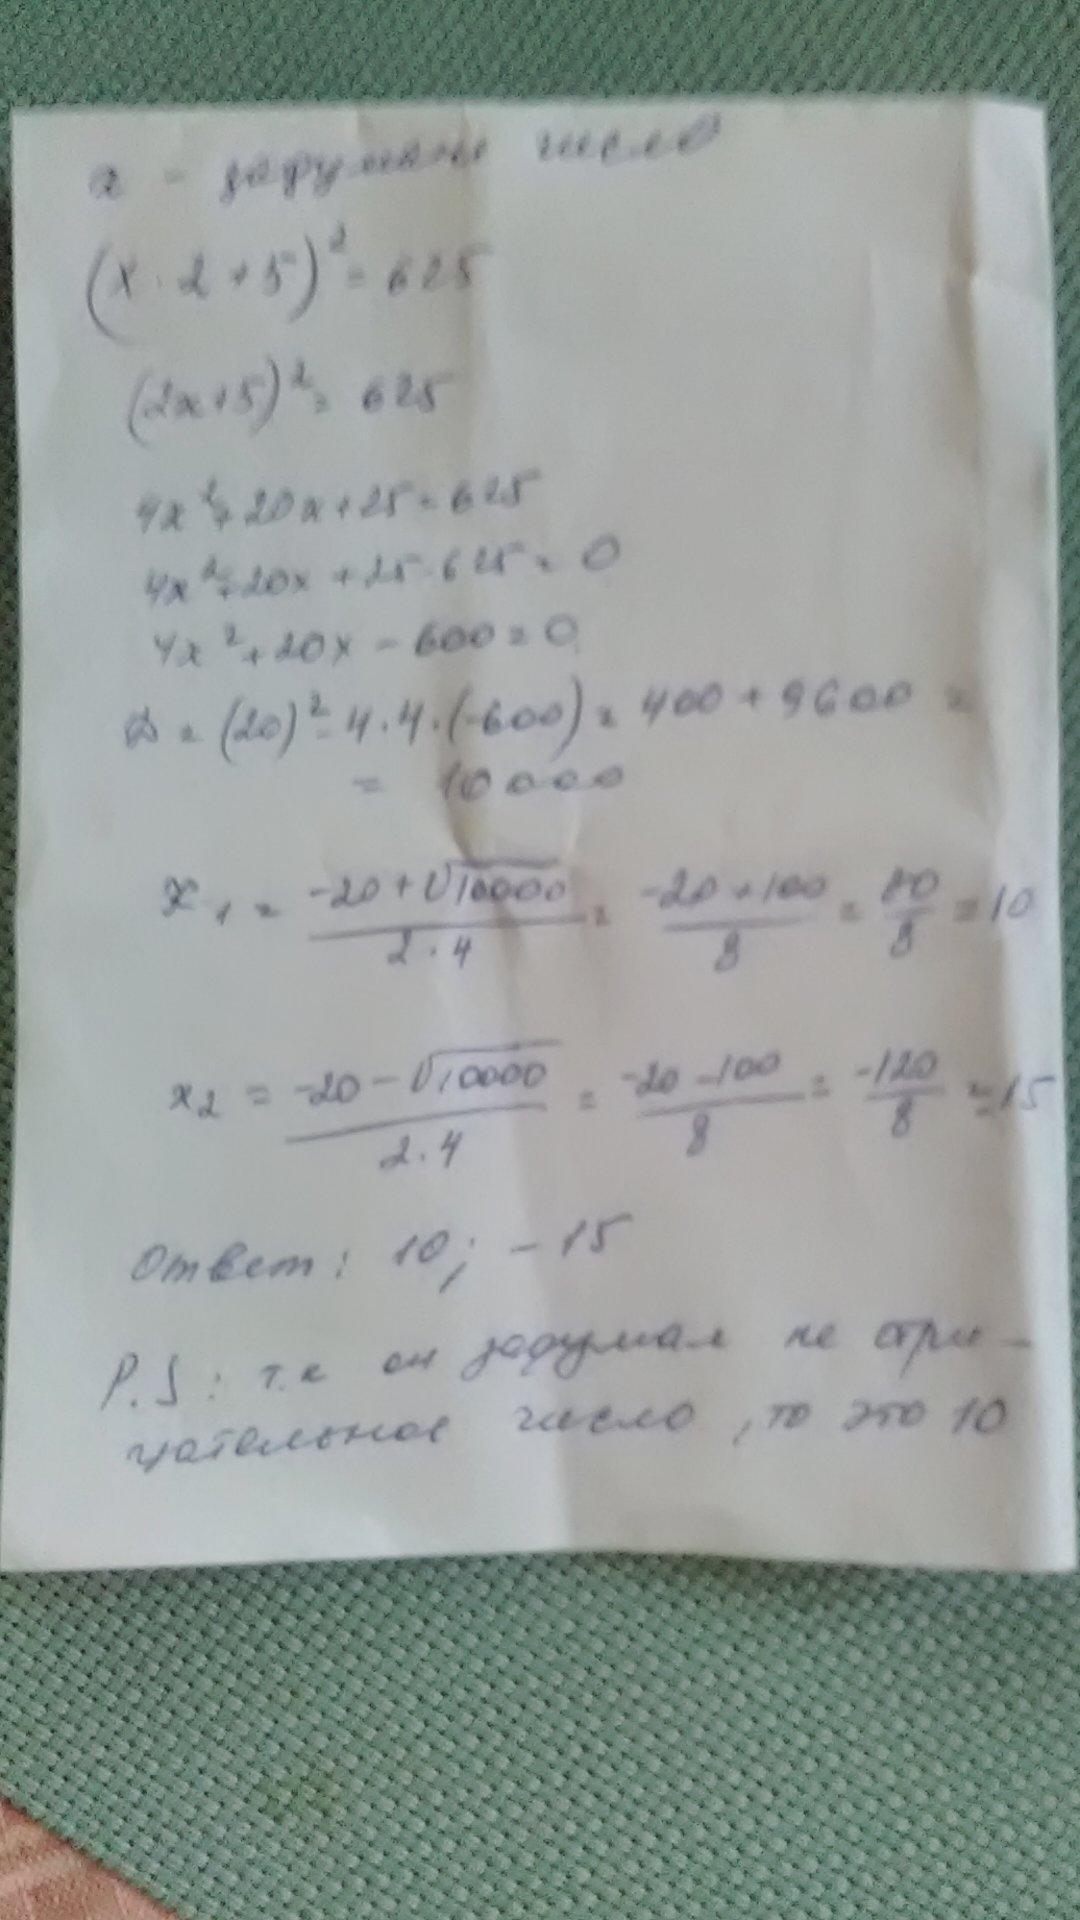 x - задумано число
(x · 2 + 5)² = 625
(2x+5)² = 625
4x² + 20x + 25 = 625
4x² + 20x + 25 - 625 = 0
4x² + 20x - 600 = 0
D = (20)² - 4 · 4 · (-600) = 400 + 9600 =
= 10000
x₁ = (-20 + √10000)/(2 · 4) = (-20 + 100)/8 = 80/8 = 10
x₂ = (-20 - √10000)/(2 · 4) = (-20 - 100)/8 = -120/8 = -15
Ответ: 10; -15
P.S: т.к он задумал не отри-
цательное число, то это 10